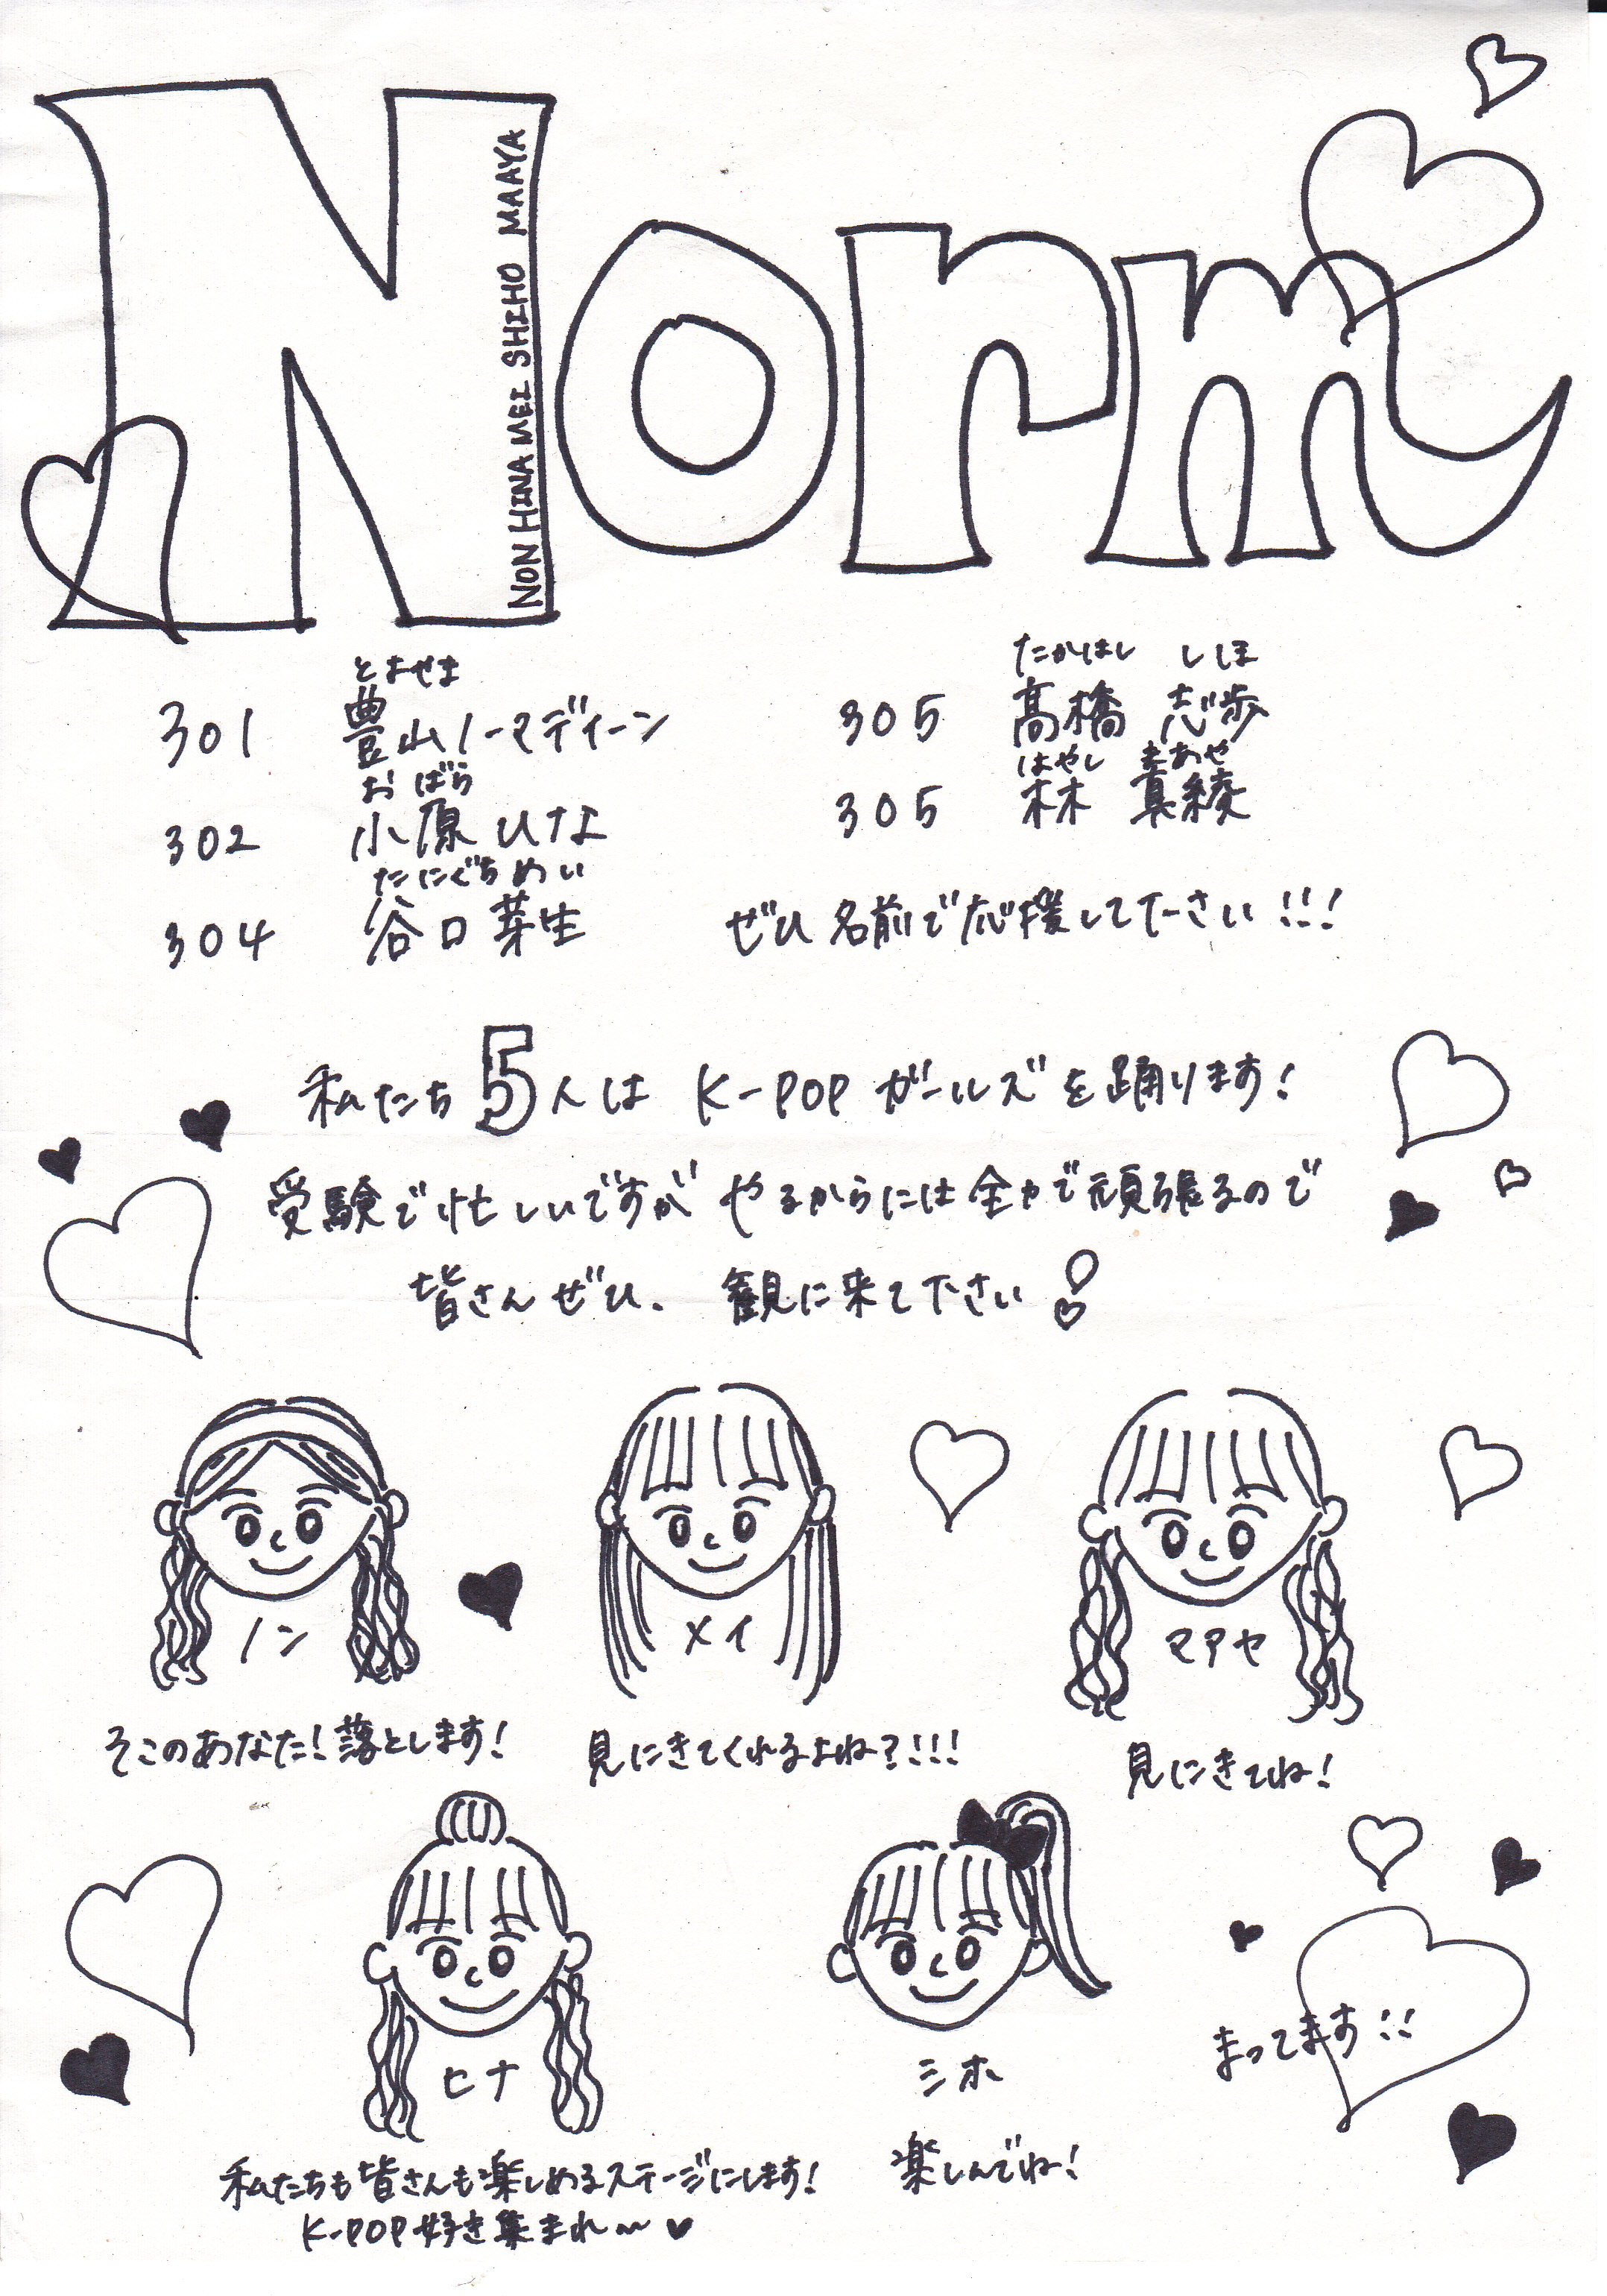 Norm
NON HINA MEI SHIHO MAAYA
とよやま
301 豊山ノーマディーン
おばら
302 小原 ひな
たにぐち めい
304 谷口 芽生
たかはし しほ
305 髙橋 志歩
はやし まあや
305 林 真綾
ぜひ名前で応援して下さい!!!
私たち5人は K-POP ガールズを踊ります!
受験で忙しいですが やるからには全力で頑張るので
皆さんぜひ、観に来て下さい!
ノン
そこのあなた!落とします!
メイ
見にきてくれるよね?!!!
マアヤ
見にきてね!
ヒナ
私たちも皆さんも楽しめるステージにします!
K-POP好き集まれ〜♥
シホ
楽しんでね!
まってます!!